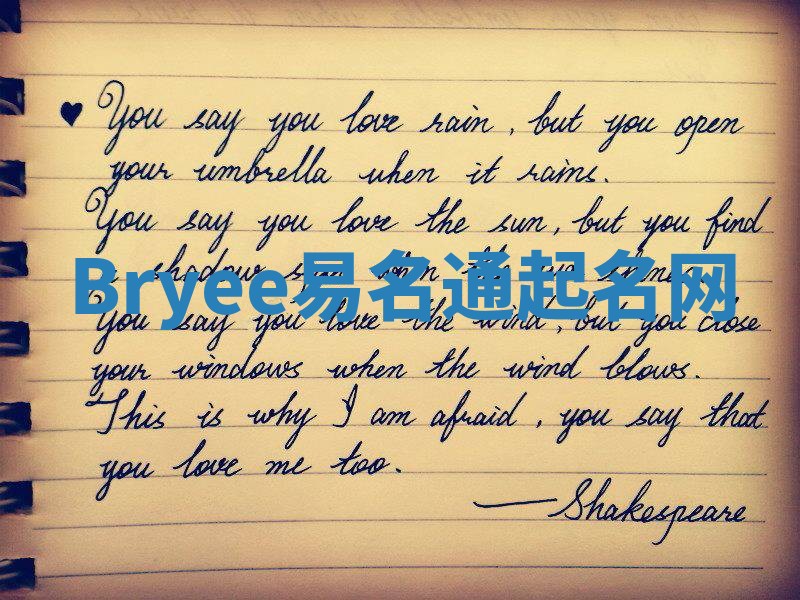 ♥ You say you love rain, but you open
your umbrella when it rains.
You say you love the sun, but you find
a shadow spot when the sun shines.
Bryee易名通起名网
You say you love the wind, but you close
your windows when the wind blows.
This is why I am afraid, you say that
you love me too.
—Shakespeare